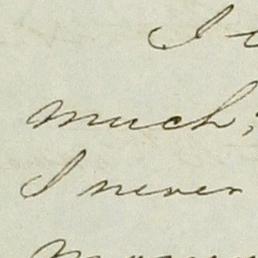 I
much;
I never